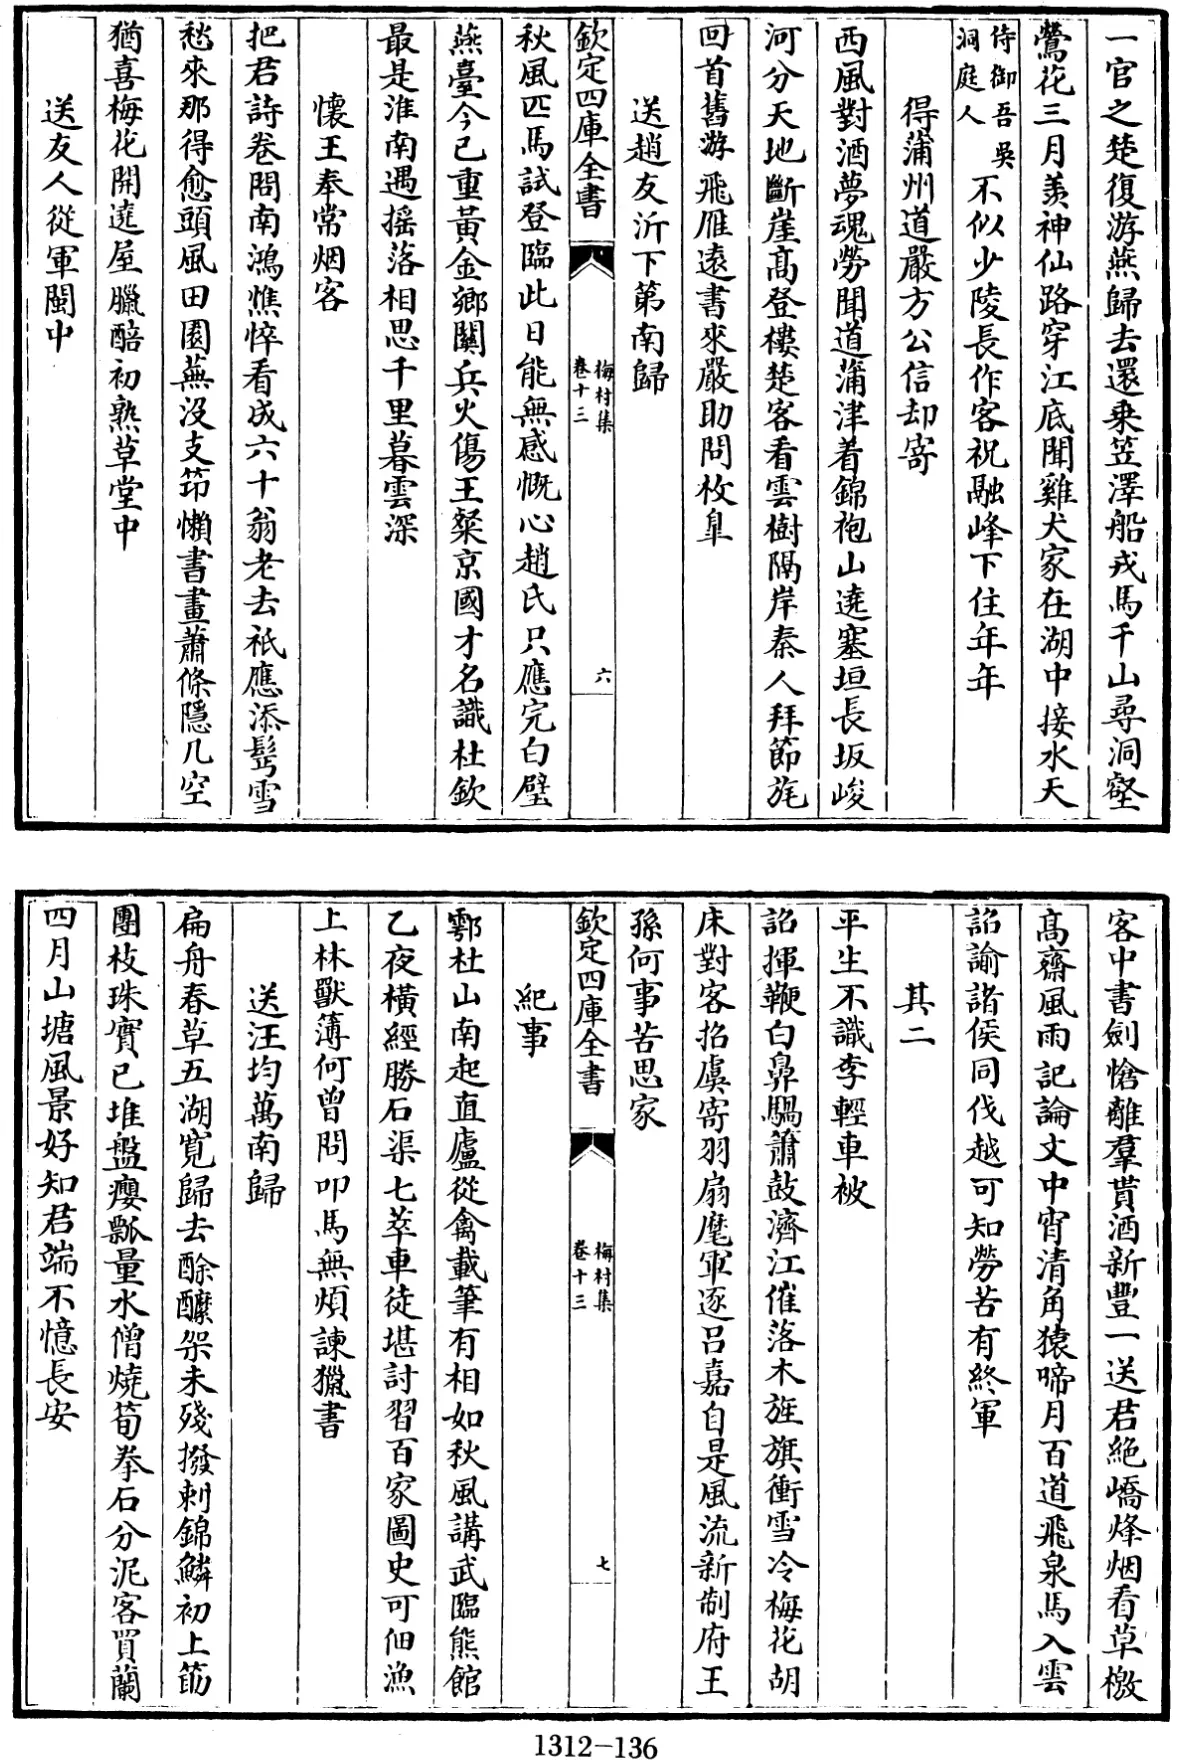 一官之楚復游燕歸去還乘笠澤船戎馬千山尋洞壑
鶯花三月羨神仙路穿江底聞雞犬家在湖中接水天
侍御吾吳
洞庭人
不似少陵長作客祝融峰下住年年
得蒲州道嚴方公信却寄
西風對酒夢魂勞聞道蒲津着錦袍山遶塞垣長坂峻
河分天地斷崖高登樓楚客看雲樹隔岸秦人拜節旄
回首舊游飛雁遠書來嚴助問枚皐
送趙友沂下第南歸
欽定四庫全書
梅村集
卷十三
六
秋風匹馬試登臨此日能無感慨心趙氏只應完白璧
燕臺今已重黃金鄉關兵火傷王粲京國才名識杜欽
最是淮南遇搖落相思千里暮雲深
懷王奉常烟客
把君詩卷問南鴻憔悴看成六十翁老去祇應添髩雪
愁來那得愈頭風田園蕪沒支笻懶書畫蕭條隱几空
猶喜梅花開遶屋臘醅初熟草堂中
送友人從軍閩中
客中書劍愴離羣貰酒新豐一送君絶嶠烽烟看草檄
高齋風雨記論文中宵清角猿啼月百道飛泉馬入雲
詔諭諸侯同伐越可知勞苦有終軍
其二
平生不識李輕車被
詔揮鞭白鼻騧簫鼓濟江催落木旌旗衝雪冷梅花胡
床對客招虞寄羽扇麾軍逐呂嘉自是風流新制府王
孫何事苦思家
欽定四庫全書
梅村集
卷十三
七
紀事
鄠杜山南起直廬從禽載筆有相如秋風講武臨熊館
乙夜橫經勝石渠七萃車徒堪討習百家圖史可佃漁
上林獸簿何曾問叩馬無煩諫獵書
送汪均萬南歸
扁舟春草五湖寬歸去酴醿架未殘撥剌錦鱗初上筯
團枝珠實已堆盤癭瓢量水僧燒筍拳石分泥客買蘭
四月山塘風景好知君端不憶長安
1312-136